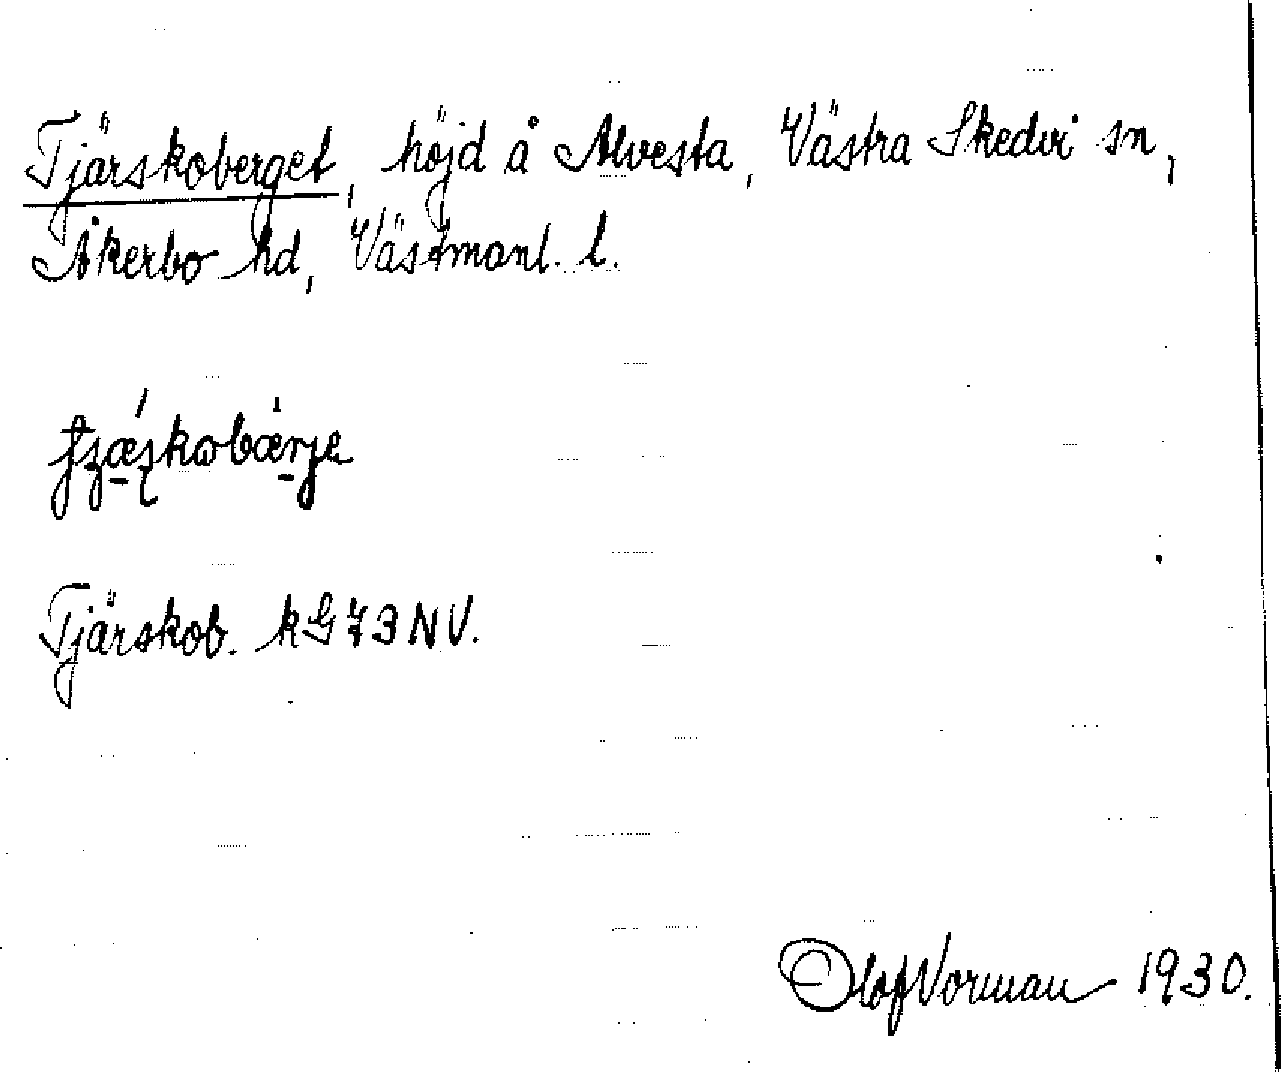 Tjärskoberget, höjd å Alvesta, Västra Skedvi sn,
Åkerbo hd, Västmanl. l.
Tjärskob. kG 73 NV.
Olof Vorman 1930.